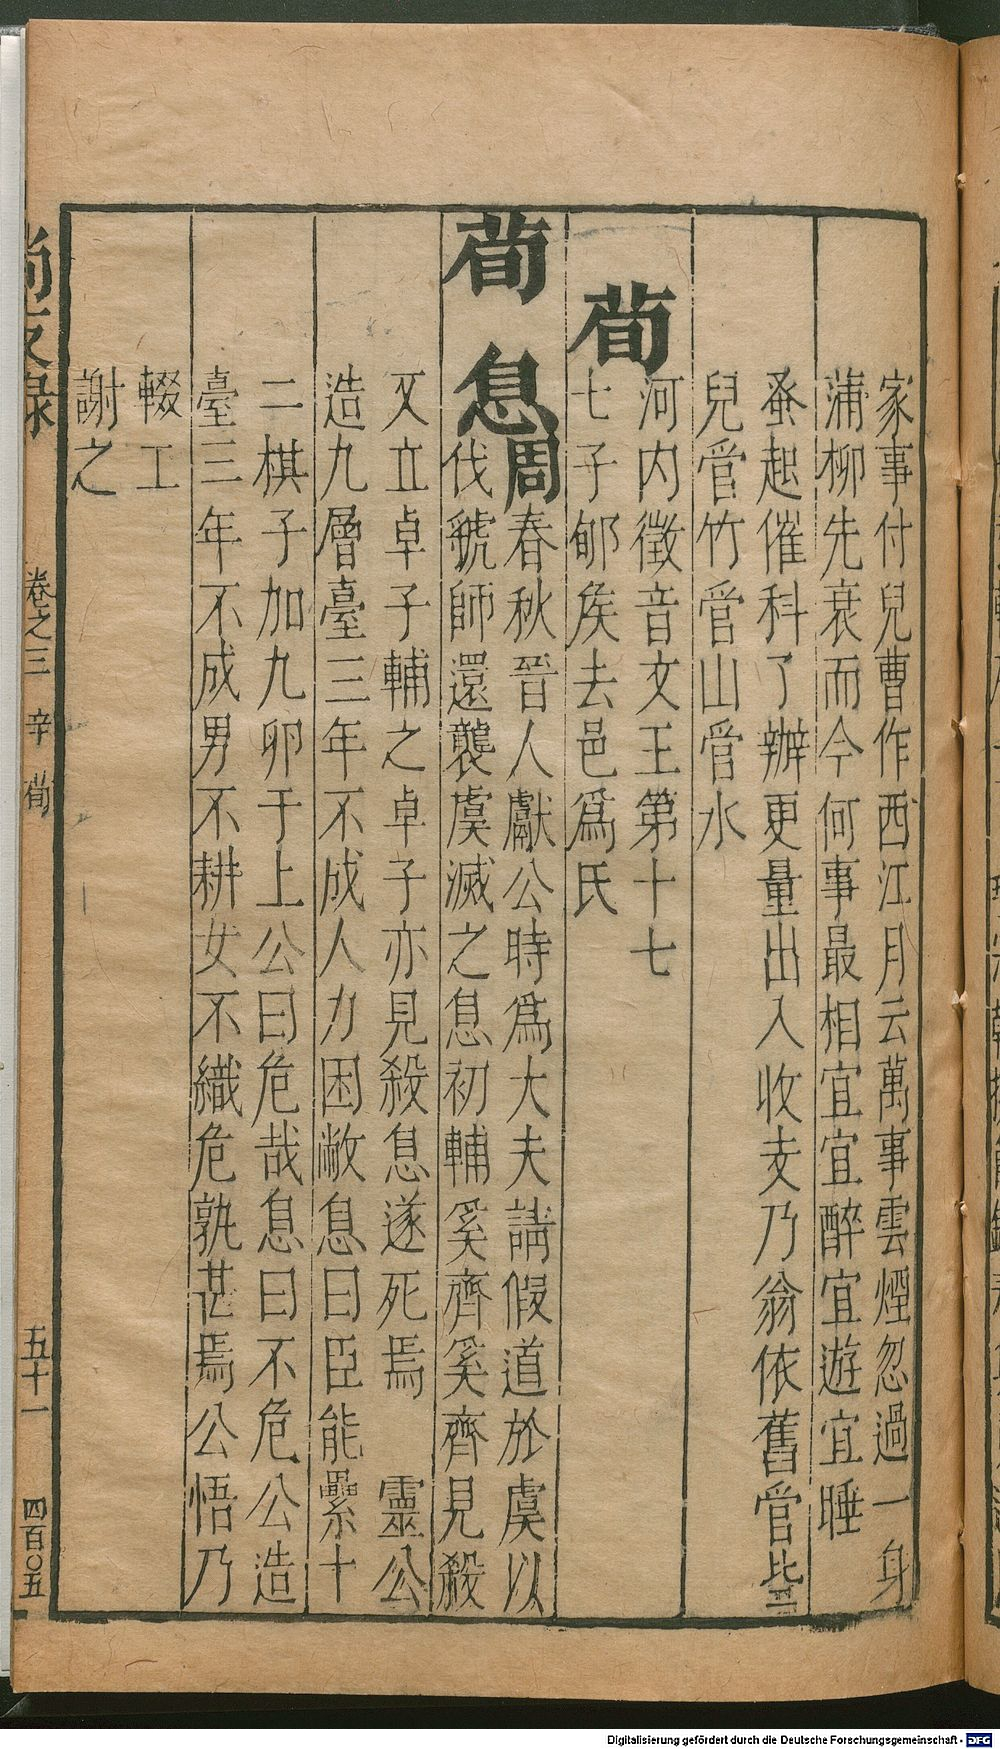 家事付兒曹作西江月云萬事雲煙忽過一身
蒲柳先衰而今何事最相宜宜醉宜遊宜睡
蚤起催科了辦更量出入收支乃翁依舊管些
兒管竹管山管水
荀
河內徵音文王第十七
七子郇矦去邑爲氏
荀息
周春秋晉人獻公時爲大夫請假道於虞以
伐虢師還襲虞滅之息初輔奚齊奚齊見殺
又立卓子輔之卓子亦見殺息遂死焉 靈公
造九層臺三年不成人力困敝息曰臣能纍十
二棋子加九卵于上公曰危哉息曰不危公造
臺三年不成男不耕女不織危孰甚焉公悟乃
輟工
謝之
尚友錄
卷之三
辛
荀
五十一
四百〇五
Digitalisierung gefördert durch die Deutsche Forschungsgemeinschaft - DFG